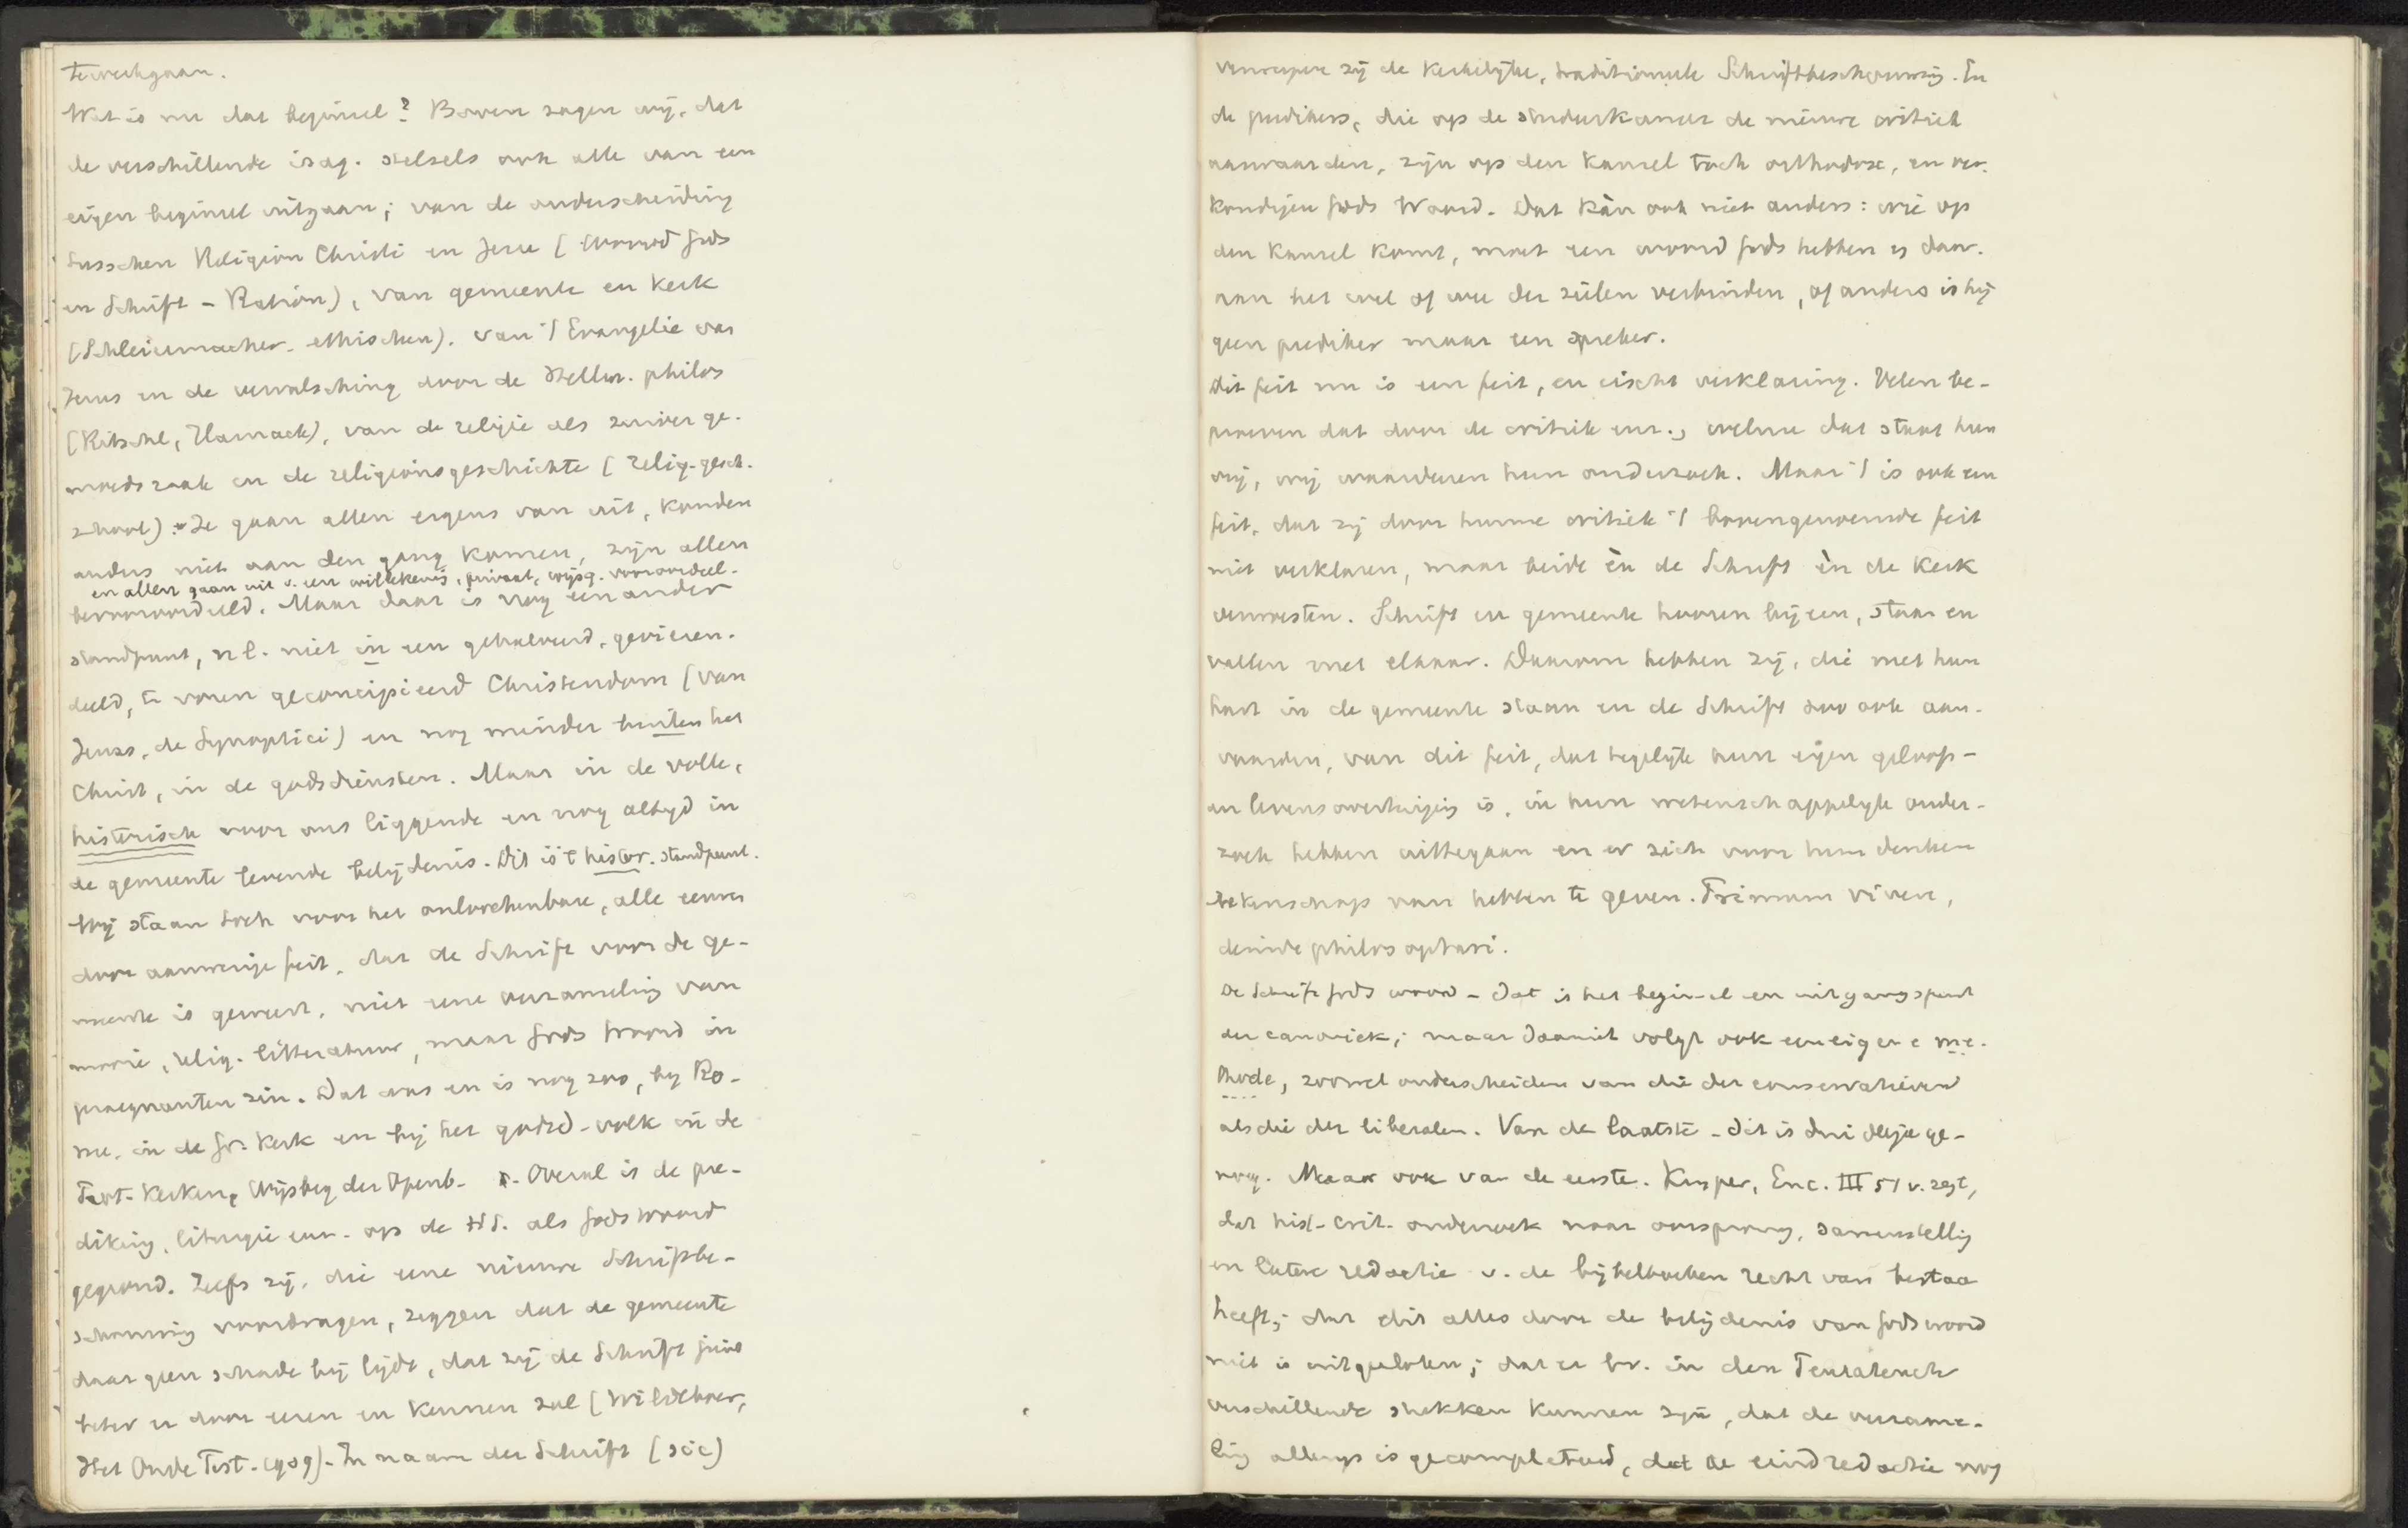 tewerkgaan.
Wat is nu dat beginsel? Boven zagen wij, dat
de verschillende isag. stelsels ook alle van een
eigen beginsel uitgaan; van de onderscheiding
tusschen Religion Christi en Jesu (Woord Gods
en Schrift - Ration), van gemeente en Kerk
(Schleiermacher - ethischen). van 't Evangelie van
Jezus en de vervalsching door de Hellen. philos
(Ritschl, Harnack), van de religie als zuiver ge-
moedszaak en de religionsgeschichte (relig.-gesch.
school). Ze gaan allen ergens van uit, konden
anders niet aan den gang komen, zijn allen
en allen gaan uit v. een willekeurig, privaat, wijsg. vooroordeel.
bevooroordeeld. Maar daar is nog een ander
standpunt, nl. niet in een gehalveerd, gevieren-
deeld, te voren geconcipieerd Christendom (van
Jezus, de Synoptici) en nog minder buiten het
Christ, in de godsdiensten. Maar in de volle,
historisch voor ons liggende en nog altijd in
de gemeente levende belijdenis. Dit is 't histor. standpunt.
Wij staan toch voor het onloochenbare, alle eeuwen
door aanwezige feit, dat de Schrift voor de ge-
meente is geweest, niet eene verzameling van
mooie, relig. litteratuur, maar Gods Woord in
praegnanten zin. Dat was en is nog zoo, by Ro-
me, in de Gr. Kerk en bij het godsd-volk in de
Prot. Kerken, Wijsbeg der Openb. Overal is de pre-
diking, liturgie enz. op de H.S. als Gods Woord
gegrond. Zelfs zij, die eene nieuwe Schriftbe-
schouwing voordragen, zeggen dat de gemeente
daar geen schade bij lijdt, dat zij de Schrift juist
beter er door eeren en kennen zal (Wildeboer,
Het Oude Test. 1909). In naam der Schrift (sic)
verwerpen zij de Kerkelijke, traditioneele Schriftbeschouwing. En
de predikers, die op de studeerkamer de nieuwe critiek
aanvaarden, zijn op den kansel toch orthodox, en ver-
kondigen Gods Woord. Dat kàn ook niet anders: wie op
den kansel komt, moet een woord Gods hebben en daar-
aan het wel of wee der zielen verbinden, of anders is hij
geen prediker maar een spreker.
Dit feit nu is een feit, en eischt verklaring. Velen be-
proeven dat door de critiek enz., welnu dat staat hun
vrij, wij waardeeren hun onderzoek. Maar 't is ook een
feit, dat zij door hunne critiek 't bovengenoemde feit
niet verklaren, maar beide èn de Schrift èn de Kerk
verwoesten. Schrift en gemeente hooren bijeen, staan en
vallen met elkaar. Daarom hebben zij, die met hun
hart in de gemeente staan en de Schrift zoo ook aan-
vaarden, van dit feit, dat tegelijk hun eigen geloofs-
en levensovertuiging is, in hun wetenschappelijk onder-
zoek hebben uittegaan en er zich voor hun denken
rekenschap van hebben te geven. Primum vivere,
deinde philosophari.
De Schrift Gods woord - dat is het beginsel en uitgangspunt
der canoniek; maar daaruit volgt ook eene eigene me-
thode, zoowel onderscheiden van die der conservatieven
als die der liberalen. Van de laatste - dat is duidelijk ge-
noeg. Maar ook van de eerste. Kuyper, Enc. III 51 v. zegt,
dat hist-crit. onderzoek naar oorsprong, samenstelling
en latere redactie v. de bijbelboeken recht van bestaan
heeft; dat dit alles door de belijdenis van Gods woord
niet is uitgesloten; dat er bv. in den Pentateuch
verschillende stukken kunnen zijn, dat de verzame-
ling allengs is gecompleteerd, dat de eindredactie nog